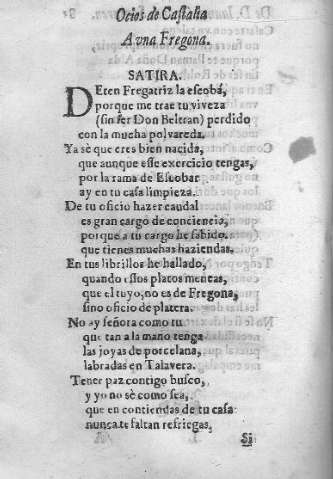 Ocios de Castalia
A vna Fregona.
SATIRA.
DEten Fregatriz la escobâ,
porque me trae tu viveza
(sin ser Don Beltran) perdido
con la mucha polvareda.
Ya sè que eres bien nacida,
que aunque esse exercicio tengas,
por la rama de Escobar
ay en tu casa limpieza.
De tu oficio hazer caudal
es gran cargo de conciencia,
porque a tu cargo he sabido
que tienes muchas haziendas.
En tus librillos he hallado,
quando essos platos meneas,
que el tuyo, no es de Fregona,
sino oficio de platera.
No ay señora como tu
que tan a la mano tenga
las joyas de porcelana,
labradas en Talavera.
Tener paz contigo busco,
y yo no sè como sea,
que en contiendas de tu casa
nunca te faltan refriegas,
Si